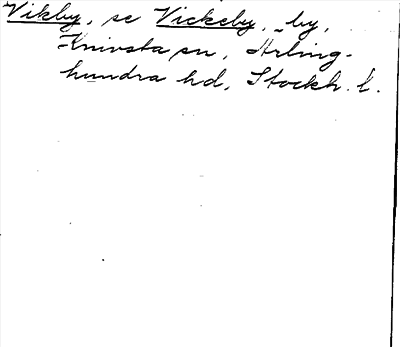 Vikby, se Vickeby, by,
Knivsta sn, Ärling-
hundra hd, Stockh. l.